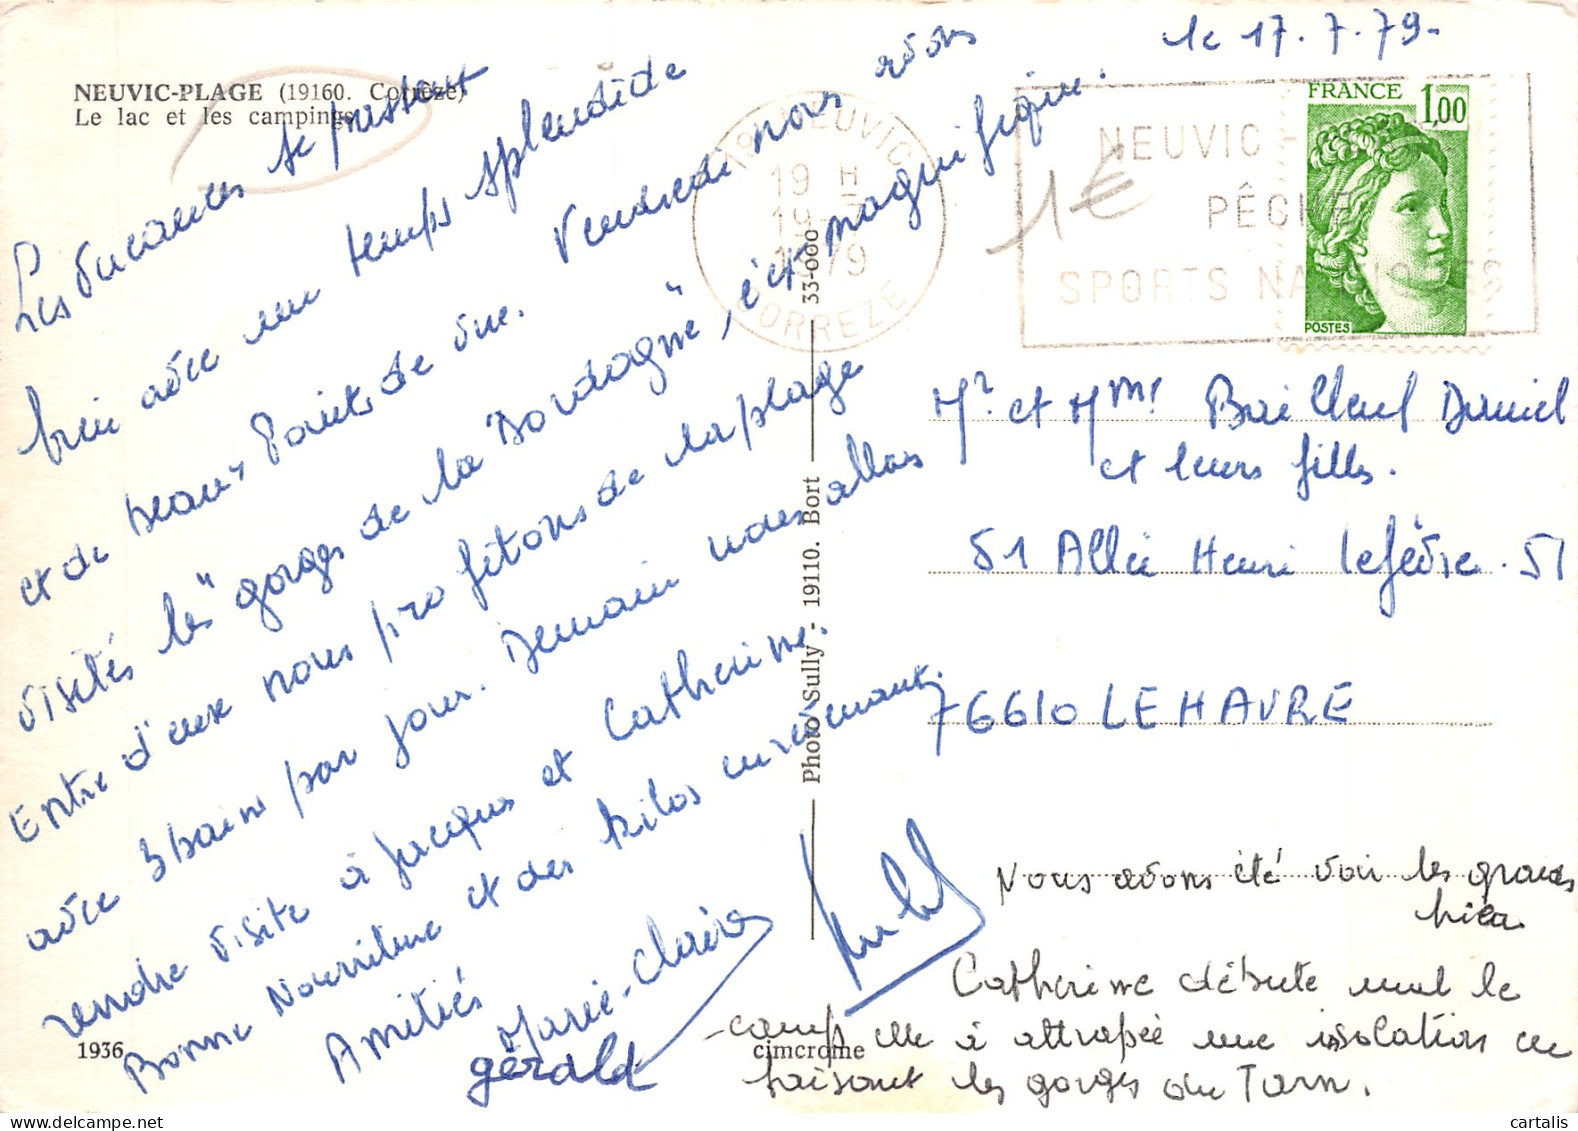 le 17.7.79.
NEUVIC-PLAGE (19160. Corrèze)
Le lac et les campings
Les vacances se passent
bien avec un temps splendide
et de beaux points de vue. Vendredi nous avons
visités les "gorges de la Dordogne", c'est magnifique.
Entre d'eux nous profitons de la plage
avec 3 bains par jour. Demain nous allons
rendre visite à Jacques et Catherine.
Bonne Nourriture et des kilos surement.
Amitiés
Marie-Claire
gérald
1936
Photo Sully - 19110. Bort
33-000
cimcrome
19 NEUVIC
19 H
19-7
1979
CORREZE
NEUVIC -
PÊCHE
SPORTS NAUTIQUES
1€
FRANCE 1,00
POSTES
Mr et Mme Bailleul Daniel
et leurs filles.
51 Allée Henri Lefèvre. 51
76610 LE HAVRE
Nous avons été voir les grands
Catherine débute mal le
camp elle à attrapée une isolation en
faisant les gorges du Tarn.
cartalis